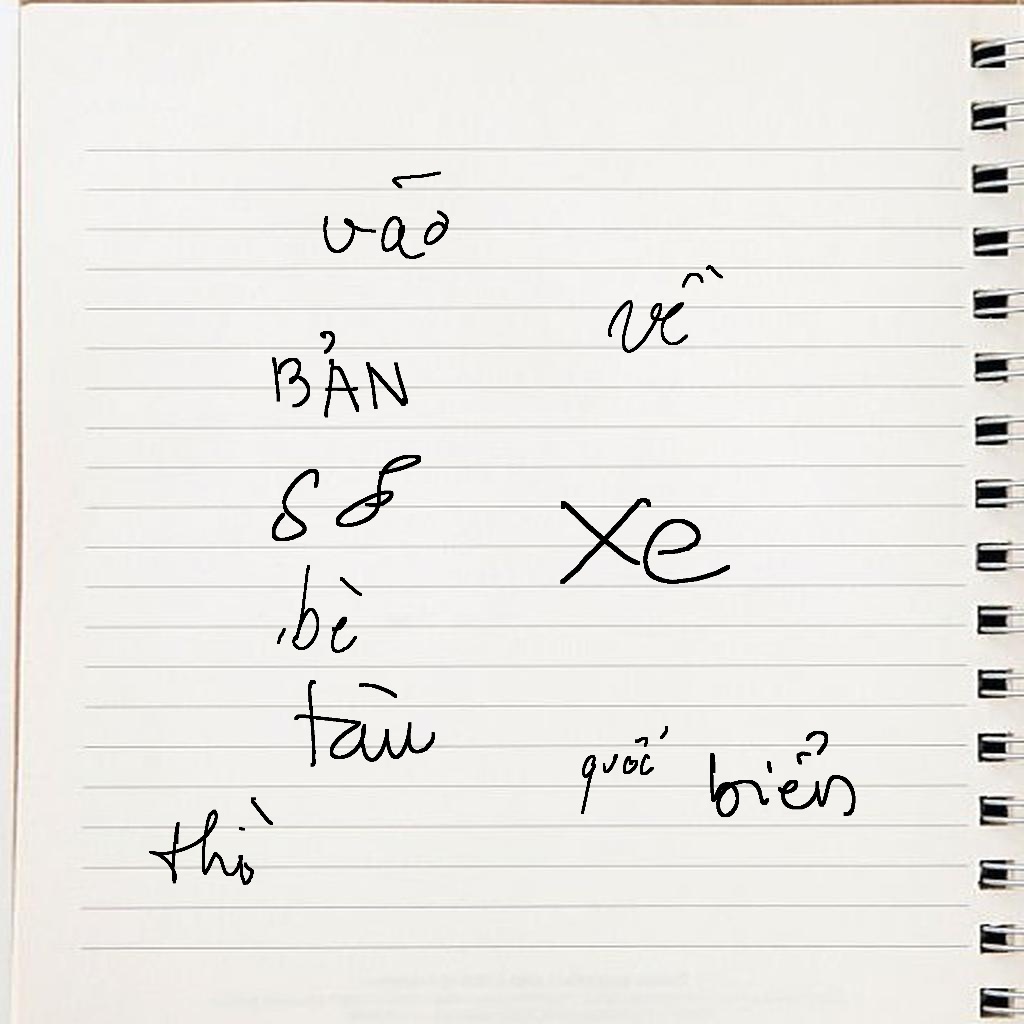 vào
về
BẢN
xe
bè
tàu
quốc biển